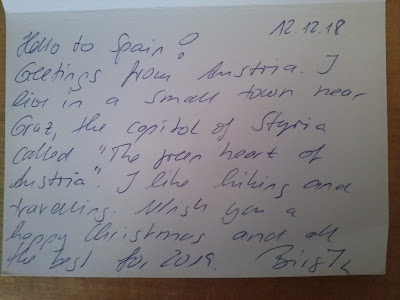 12.12.18
Hello to Spain!
Greetings from Austria. I
live in a small town near
Graz, the capitol of Styria
called "The green heart of
Austria". I like hiking and
travelling. Wish you a
happy Christmas and all
the best for 2019.